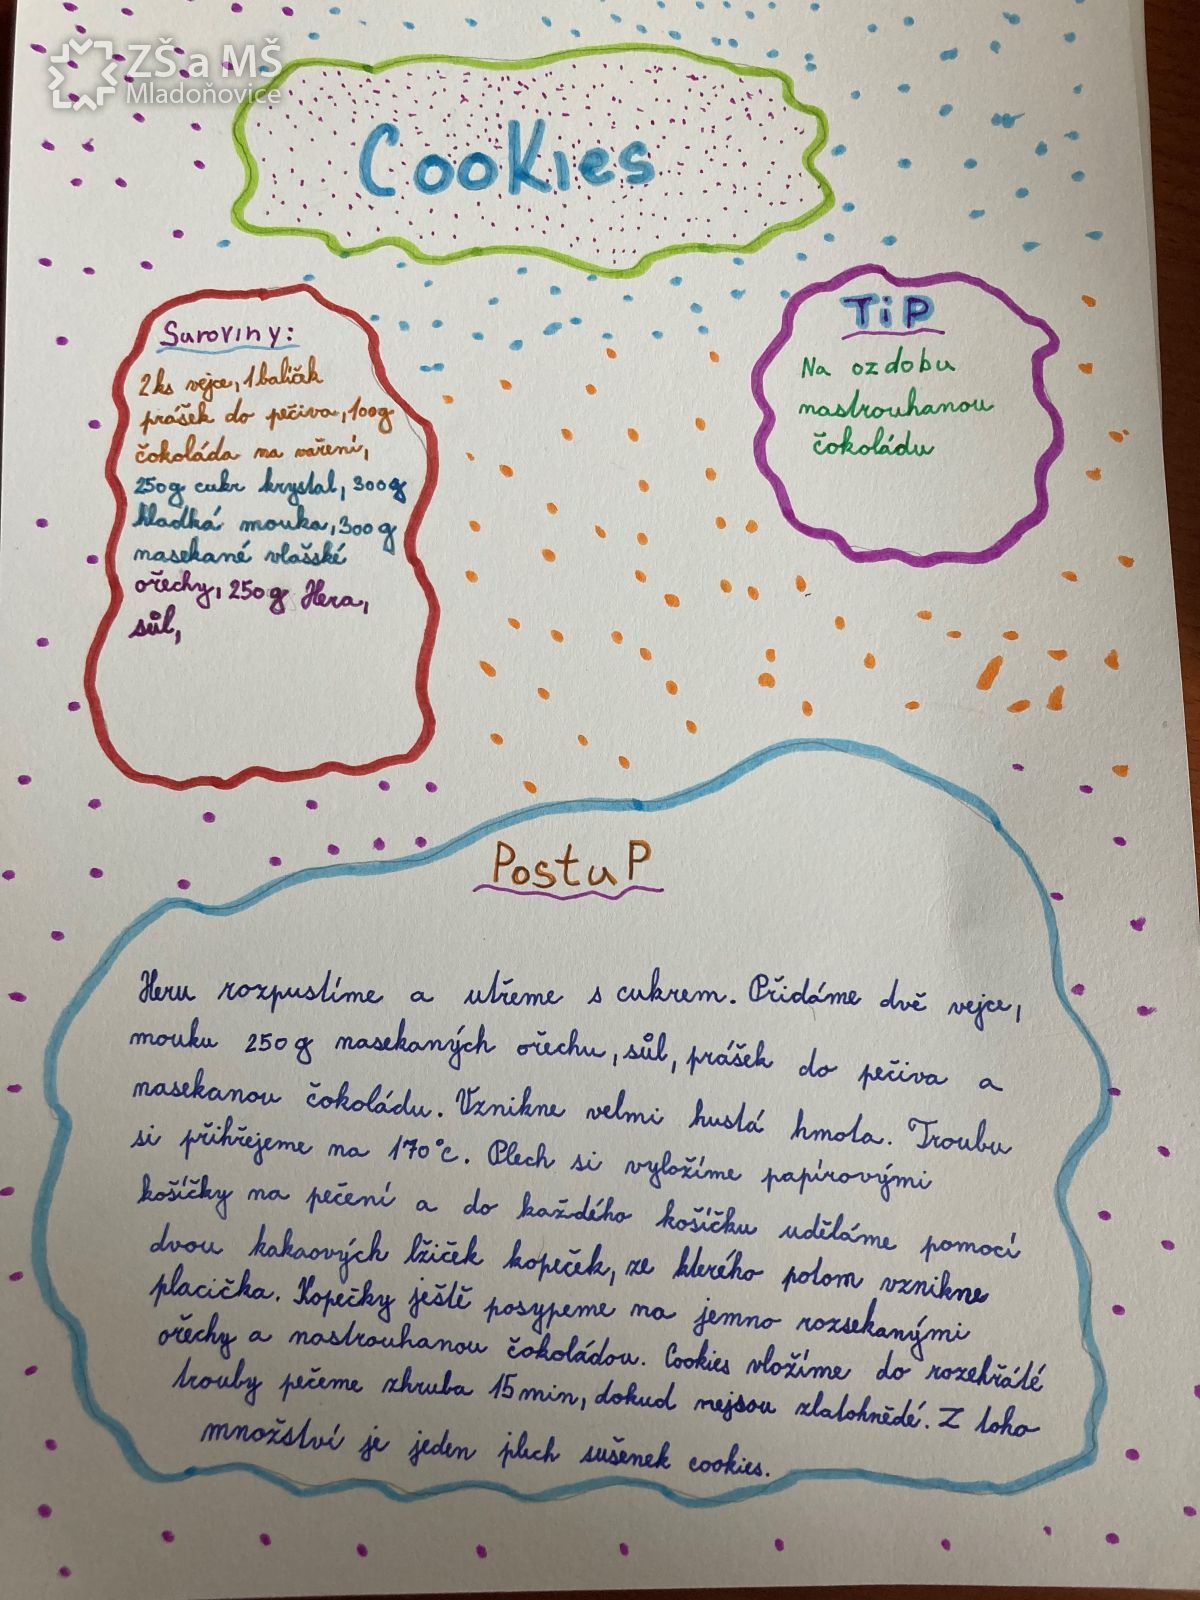 ZŠ a MŠ
Mladoňovice
Cookies
Suroviny:
2 ks vejce, 1 balíček
prášek do pečiva, 100g
čokoláda na vaření,
250g cukr krystal, 300g
hladká mouka, 300g
nasekané vlašské
ořechy, 250g Hera,
sůl,
TiP
Na ozdobu
nastrouhanou
čokoládu
PostuP
Heru rozpustíme a utřeme s cukrem. Přidáme dvě vejce,
mouku 250g nasekaných ořechu, sůl, prášek do pečiva a
nasekanou čokoládu. Vznikne velmi hustá hmota. Troubu
si přihřejeme na 170°c. Plech si vyložíme papírovými
košíčky na pečení a do každého košíčku uděláme pomocí
dvou kakaových lžiček kopeček, ze kterého potom vznikne
placička. Kopečky ještě posypeme na jemno rozsekanými
ořechy a nastrouhanou čokoládou. Cookies vložíme do rozehřáté
trouby pečeme zhruba 15 min, dokud nejsou zlatohnědé. Z toho
množství je jeden plech sušenek cookies.